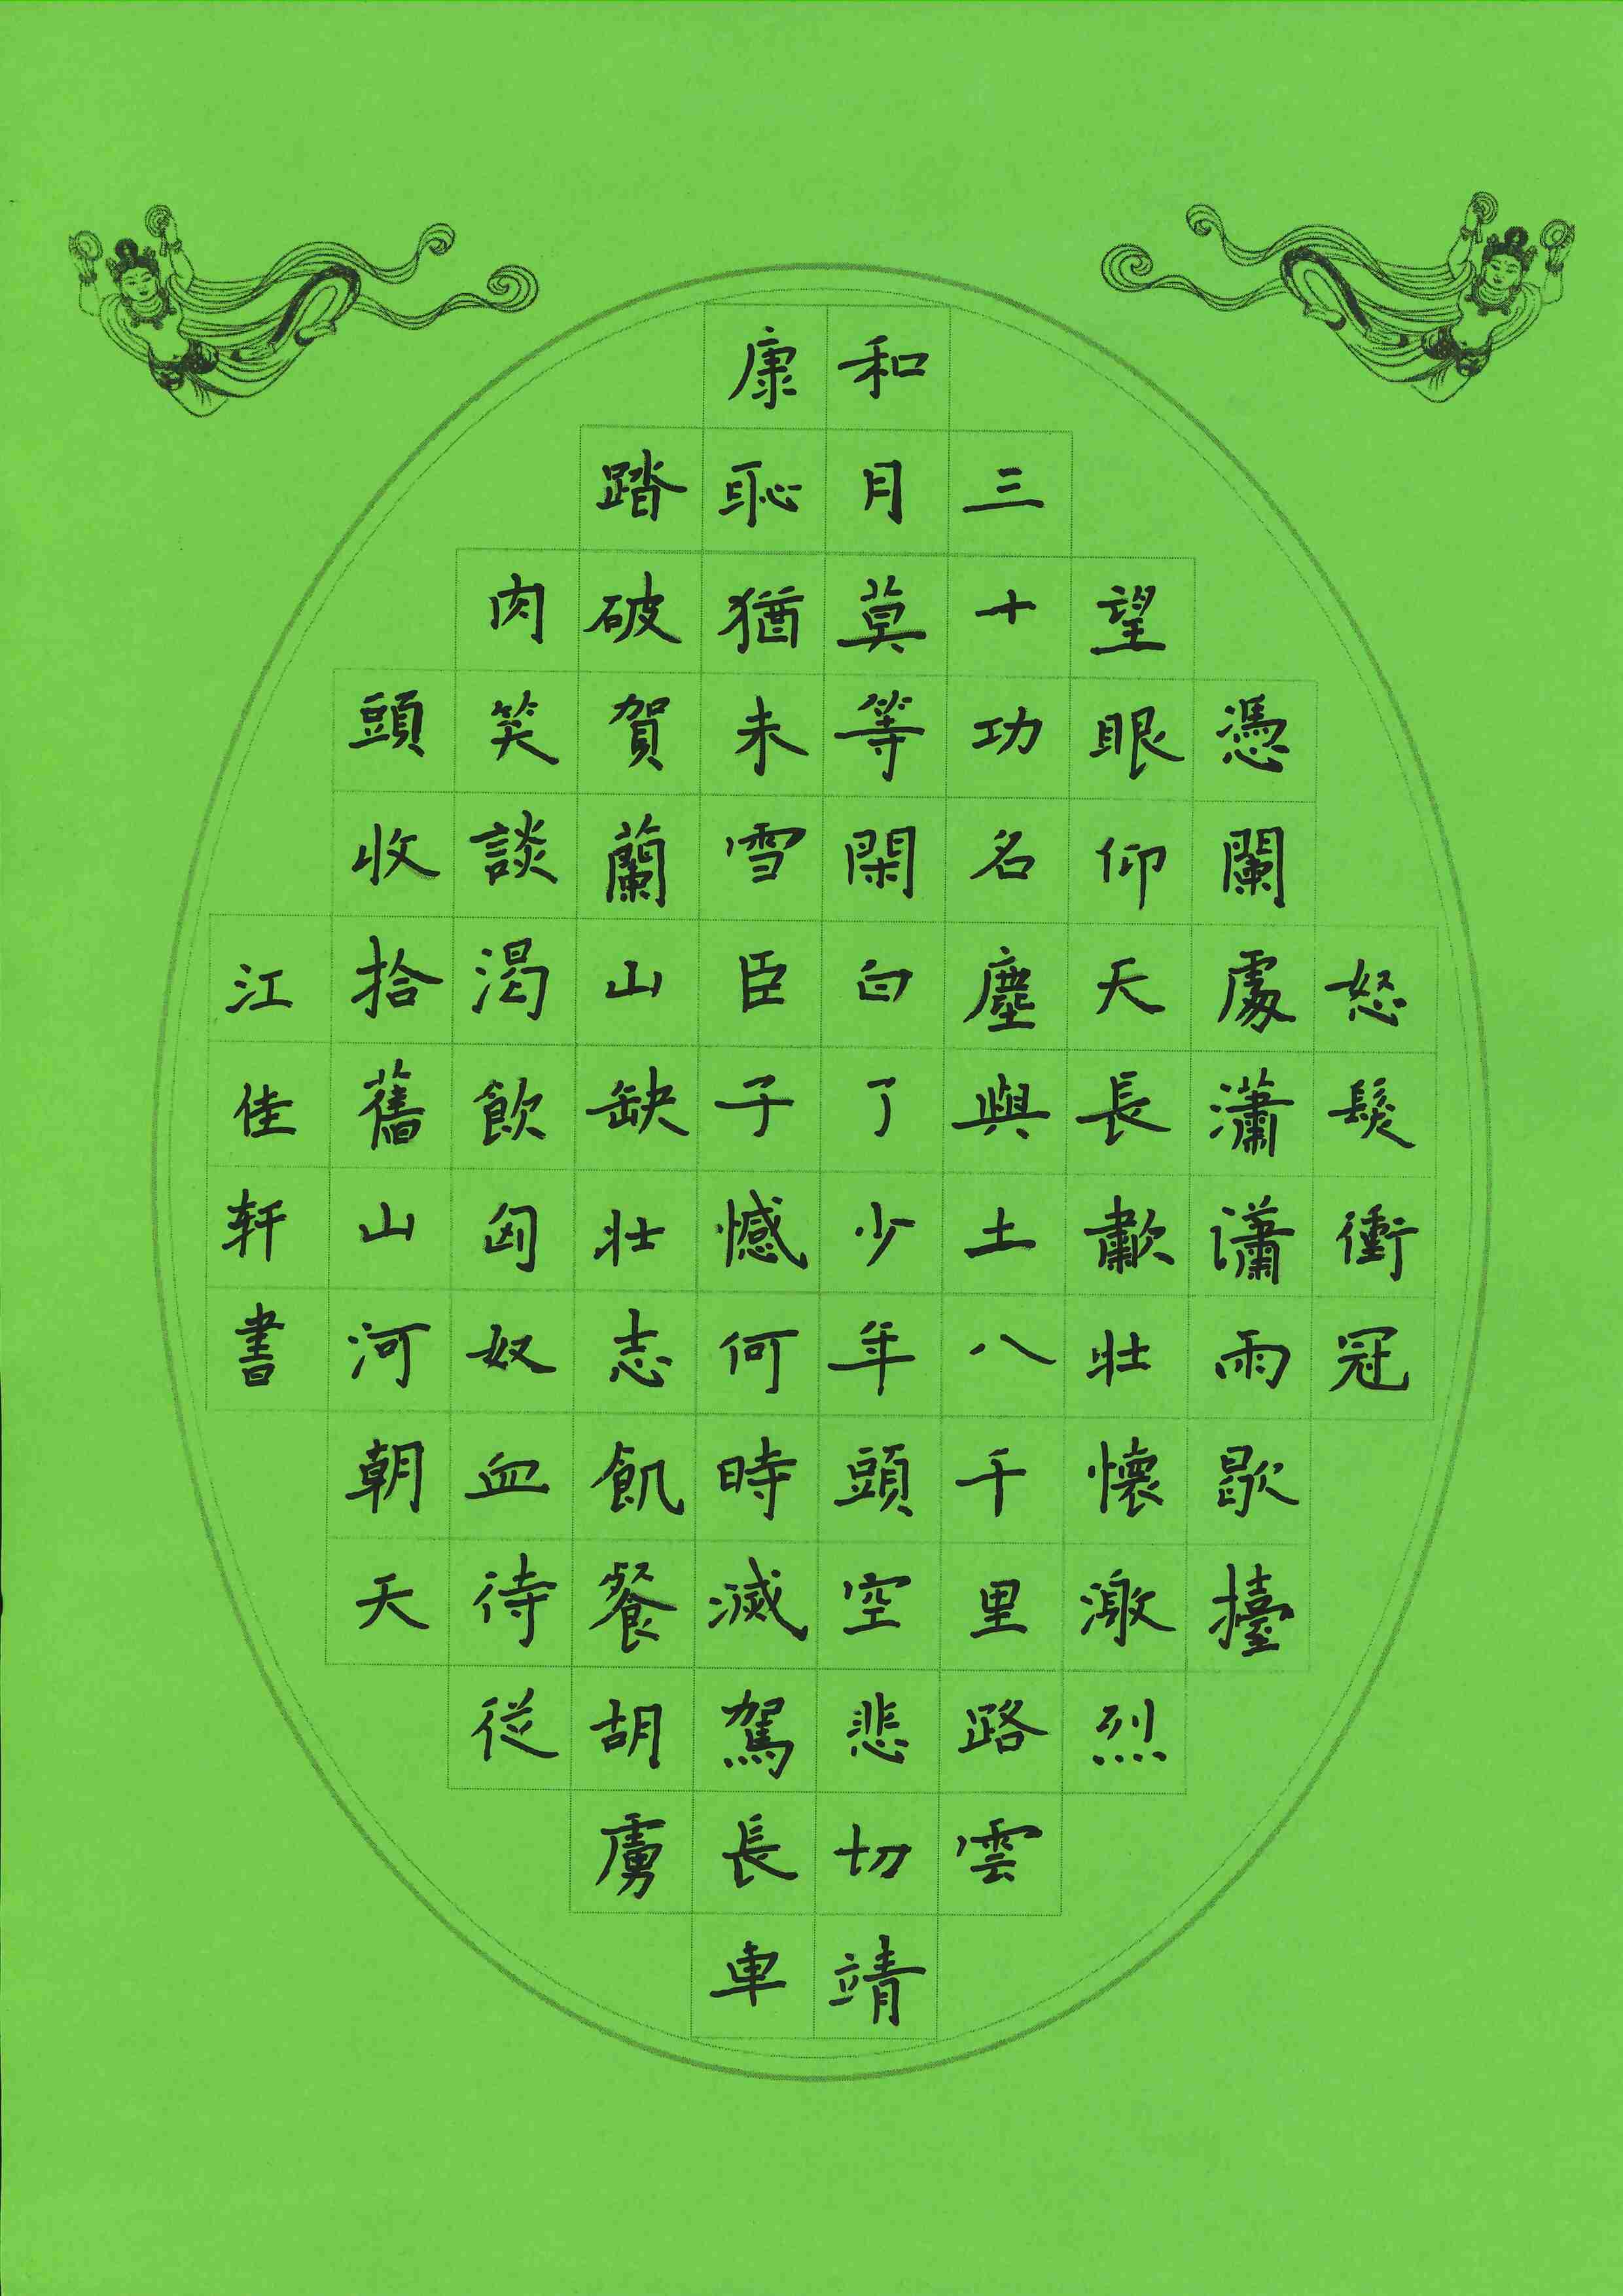 怒髮衝冠
憑闌處瀟瀟雨歇擡
望眼仰天長歗壯懷激烈
三十功名塵與土八千里路雲
和月莫等閑白了少年頭空悲切靖
康恥猶未雪臣子憾何時滅駕長車
踏破賀蘭山缺壯志飢餐胡虜
肉笑談渴飲匈奴血待從
頭收拾舊山河朝天
江佳轩書